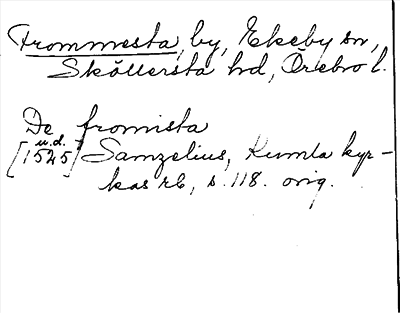 Frommesta, by, Ekeby sn,
Sköllersta hd, Örebro l.
De fromista
u.d.
[1525] Samzelius, Kumla kyr-
kas rb, s. 118. orig.